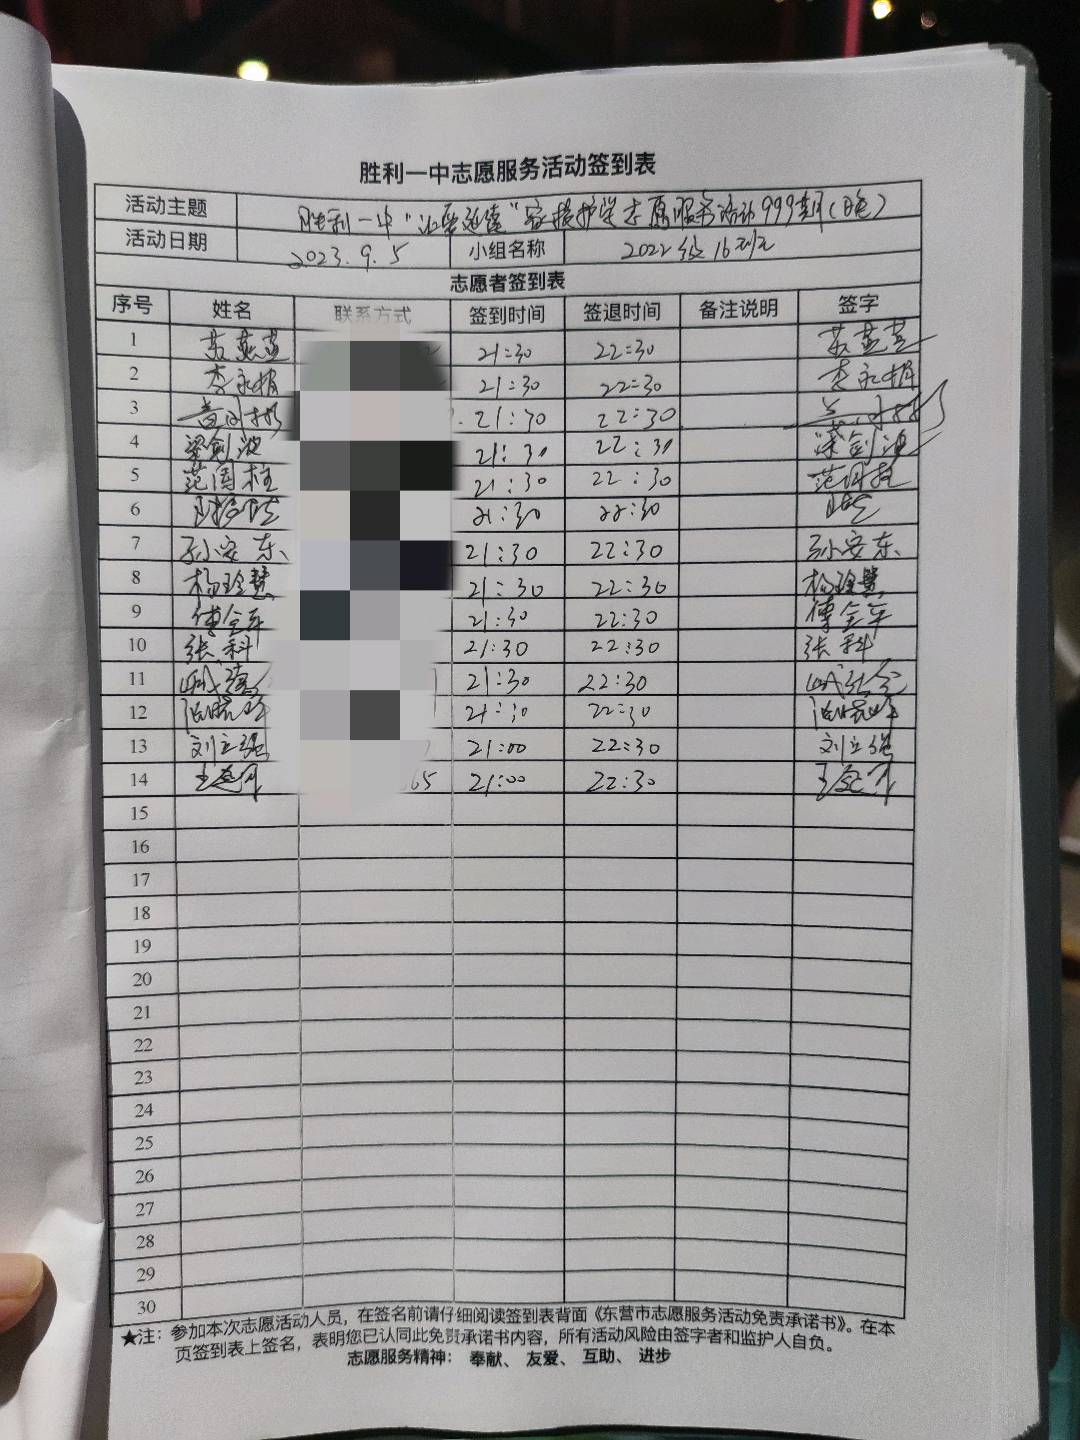 胜利一中志愿服务活动签到表
活动主题 胜利一中“让爱延续”家校护学志愿服务活动999期(晚)
活动日期 2023.9.5 小组名称 2022级16班
志愿者签到表
序号 姓名 联系方式 签到时间 签退时间 备注说明 签字
1 21:30 22:30
2 李永梅 21:30 22:30 李永梅
3 21:30 22:30
4 梁剑波 21:30 22:30 梁剑波
5 范国柱 21:30 22:30 范国柱
6 21:30 22:30
7 孙安东 21:30 22:30 孙安东
8 杨玲慧 21:30 22:30 杨玲慧
9 傅全军 21:30 22:30 傅全军
10 张科 21:30 22:30 张科
11 21:30 22:30
12 21:30 22:30
13 刘立强 21:00 22:30 刘立强
14 65 21:00 22:30
15
16
17
18
19
20
21
22
23
24
25
26
27
28
29
30
★注：参加本次志愿活动人员，在签名前请仔细阅读签到表背面《东营市志愿服务活动免责承诺书》。在本
页签到表上签名，表明您已认同此免责承诺书内容，所有活动风险由签字者和监护人自负。
志愿服务精神： 奉献、 友爱、 互助、 进步